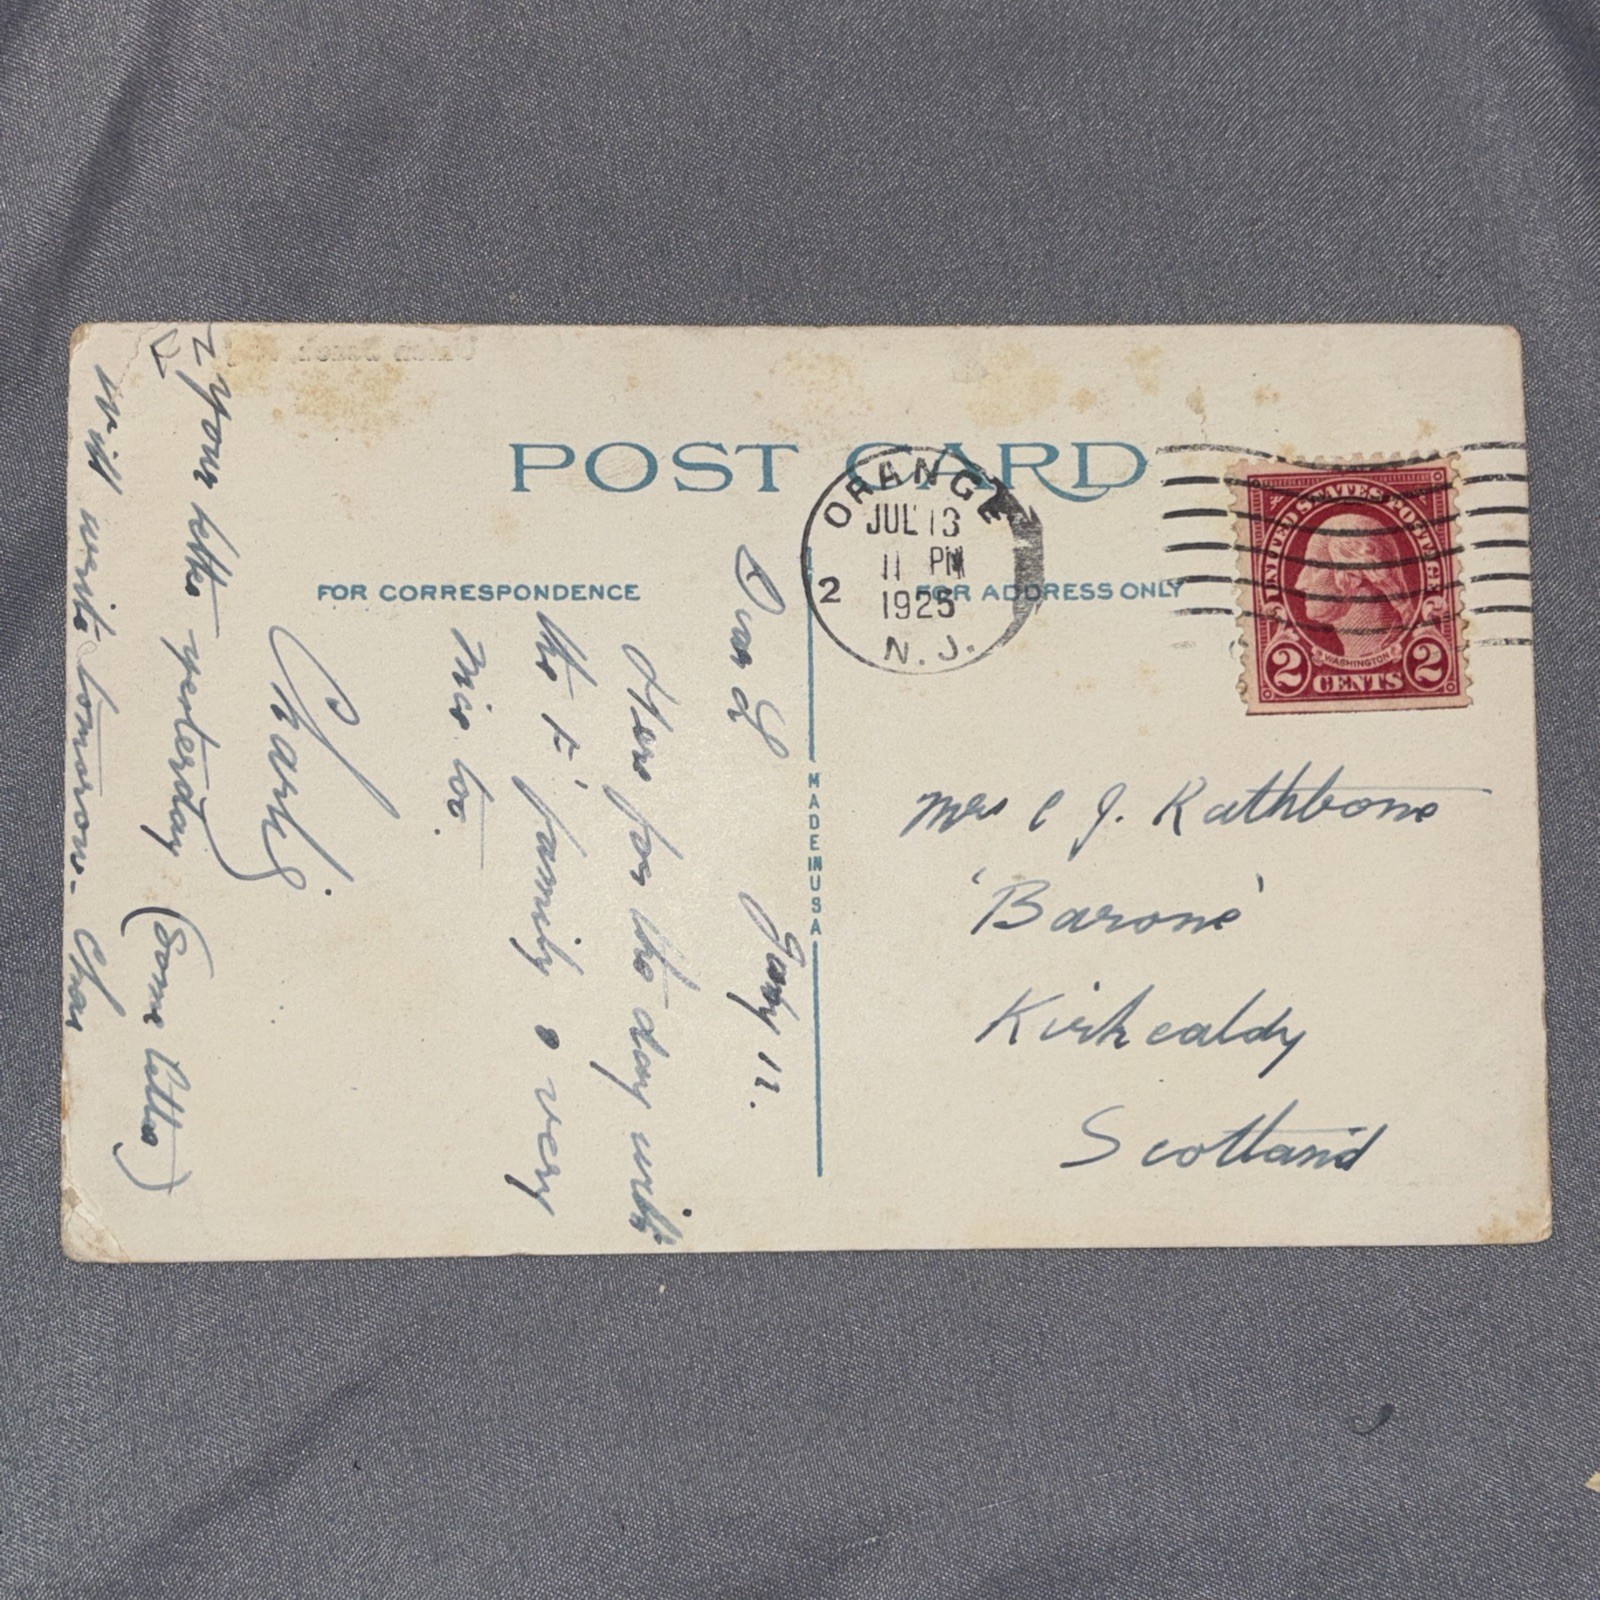 POST CARD
FOR CORRESPONDENCE
FOR ADDRESS ONLY
MADE IN USA
ORANGE
JUL 13
11 PM
1925
N. J.
2
UNITED STATES POSTAGE
WASHINGTON
2 CENTS 2
Mrs C J. Rathbone
'Barone'
Kirkcaldy
Scotland
Dear L
July 12.
Here for the day with
the F' family & very
nice too.
Charlie.
Your letter yesterday (Some letter)
will write tomorrow - Chas